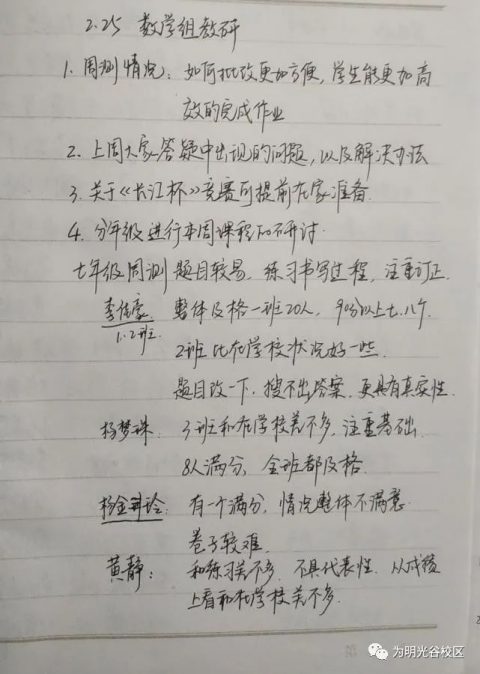 2.25 数学组教研
1. 周测情况：如何批改更加方便，学生能更加高
效的完成作业
2. 上周大家答疑中出现的问题，以及解决办法
3. 关于《长江杯》竞赛可提前在家准备.
4. 分年级进行本周课程的研讨.
七年级周测 题目较易，练习书写过程，注重订正.
李佳豪 整体及格一班20人，90分以上七.八个.
1.2班.
2班比在学校状况好一些.
题目改一下，搜不出答案，更具有真实性.
杨梦珠. 3班和在学校差不多，注重基础.
8人满分，全班都及格.
杨金 : 有一个满分，情况整体不满意.
卷子较难.
黄静： 和练习差不多，不具代表性. 从成绩
上看和在学校差不多.
为明光谷校区